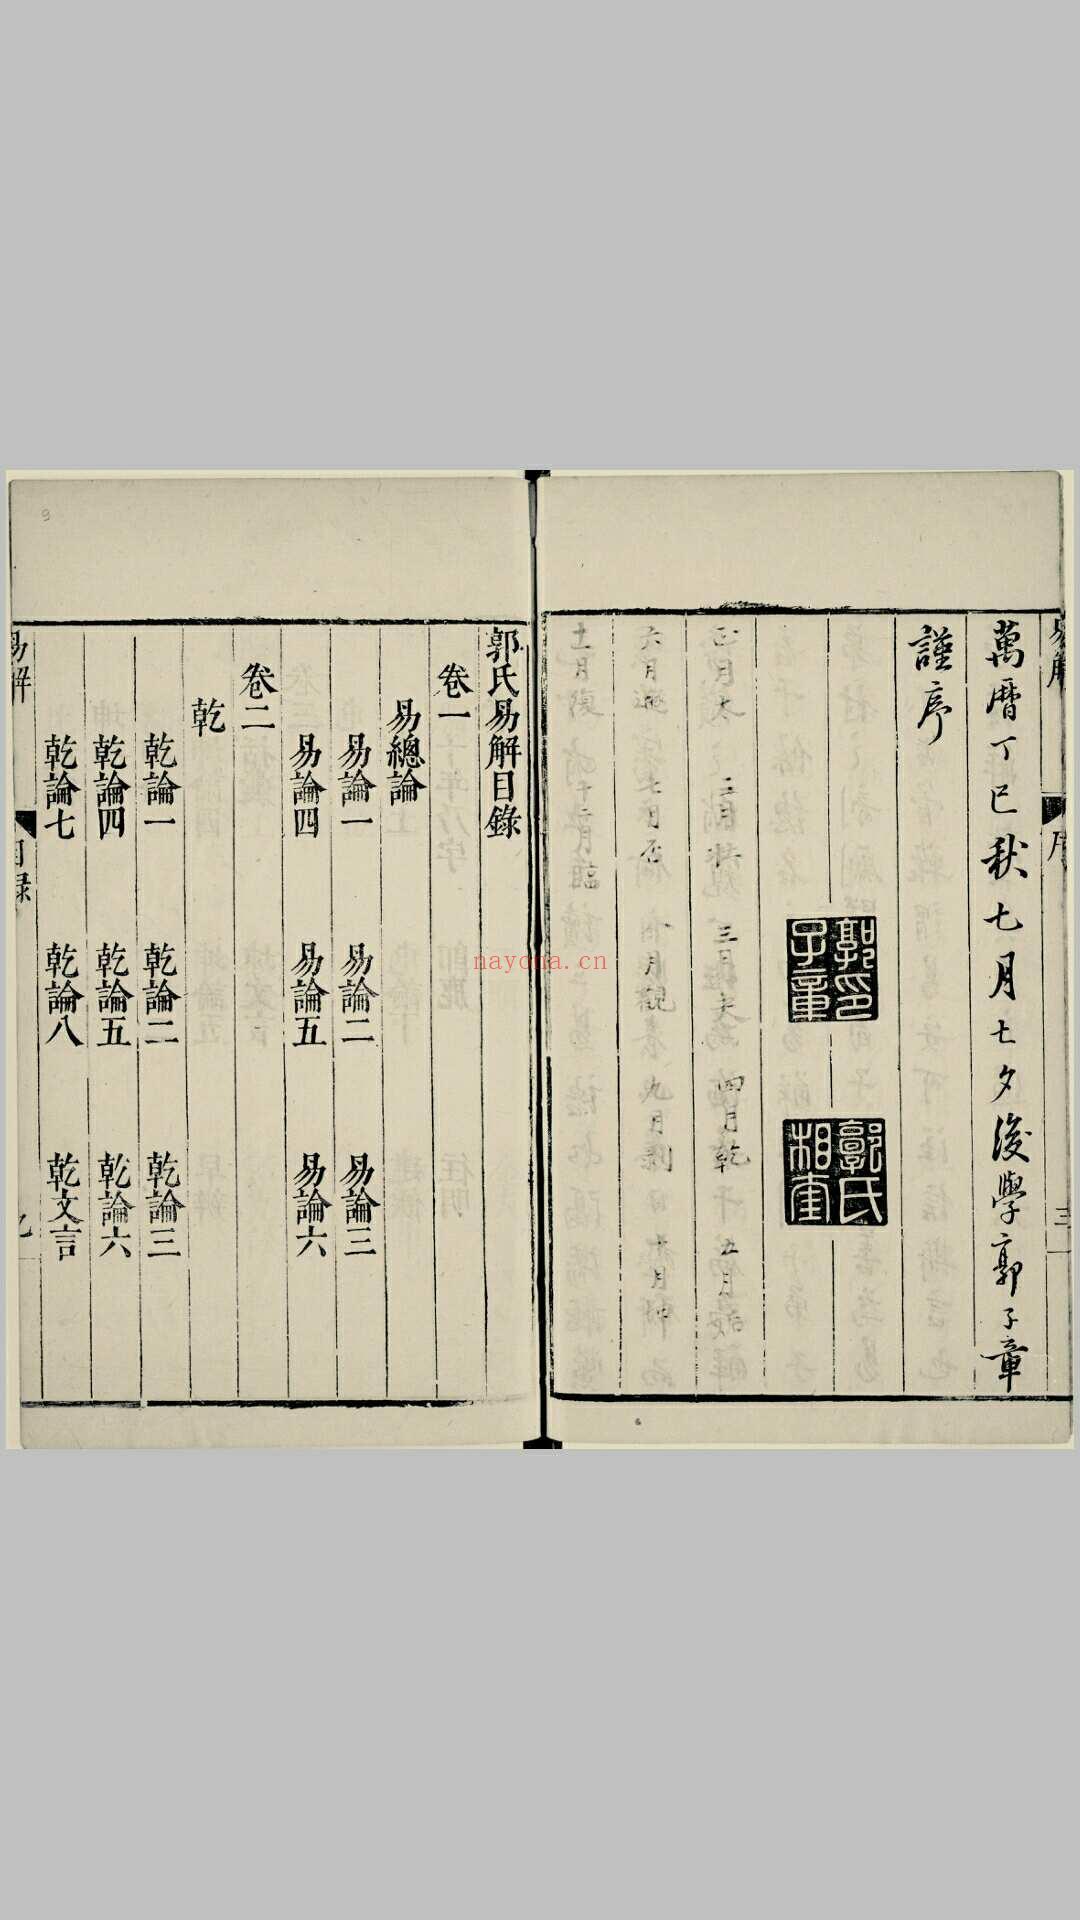 萬曆丁巳秋七月七夕後學郭子章
謹序
郭印子章
郭氏相奎
正月太 二月壯 三月夬 四月乾 五月
六月 七月否 月觀 九月剝 十月坤
十一月復 十二月臨
郭氏易解目錄
卷一
易總論
易論一 易論二 易論三
易論四 易論五 易論六
卷二
乾
乾論一 乾論二 乾論三
乾論四 乾論五 乾論六
乾論七 乾論八 乾文言
易解 目録
nayona.cn